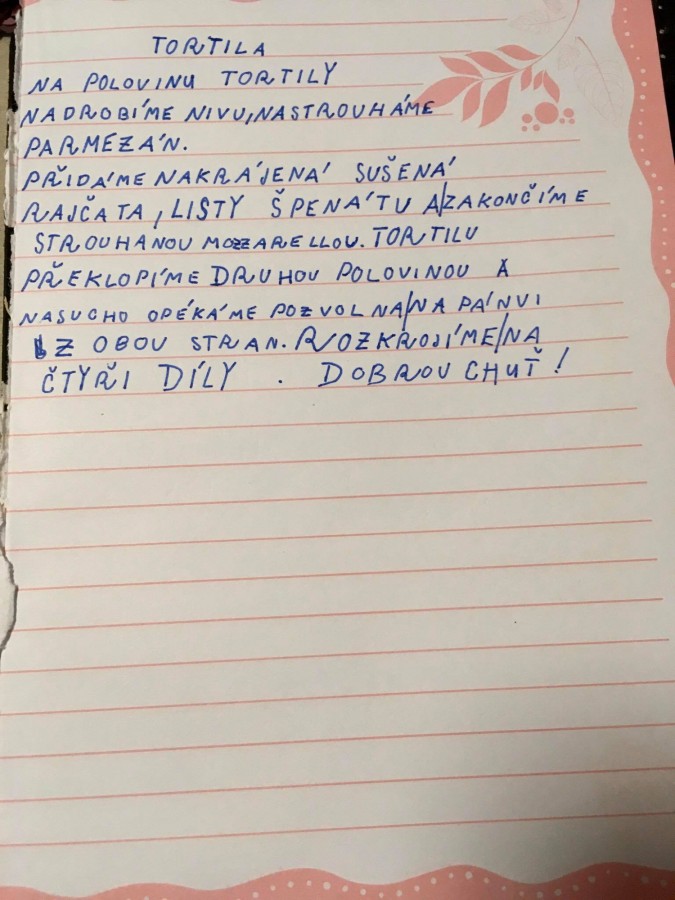 TORTILA
NA POLOVINU TORTILY
NADROBÍME NIVU, NASTROUHÁME
PARMEZÁN.
PŘIDÁME NAKRÁJENÁ SUŠENÁ
RAJČATA, LISTY ŠPENÁTU A/ZAKONČÍME
STROUHANOU MOZZARELLOU. TORTILU
PŘEKLOPÍME DRUHOU POLOVINOU A
NASUCHO OPÉKÁME POZVOLNA/NA PÁNVI
Z OBOU STRAN. ROZKROJÍME/NA
ČTYŘI DÍLY. DOBROU CHUŤ!